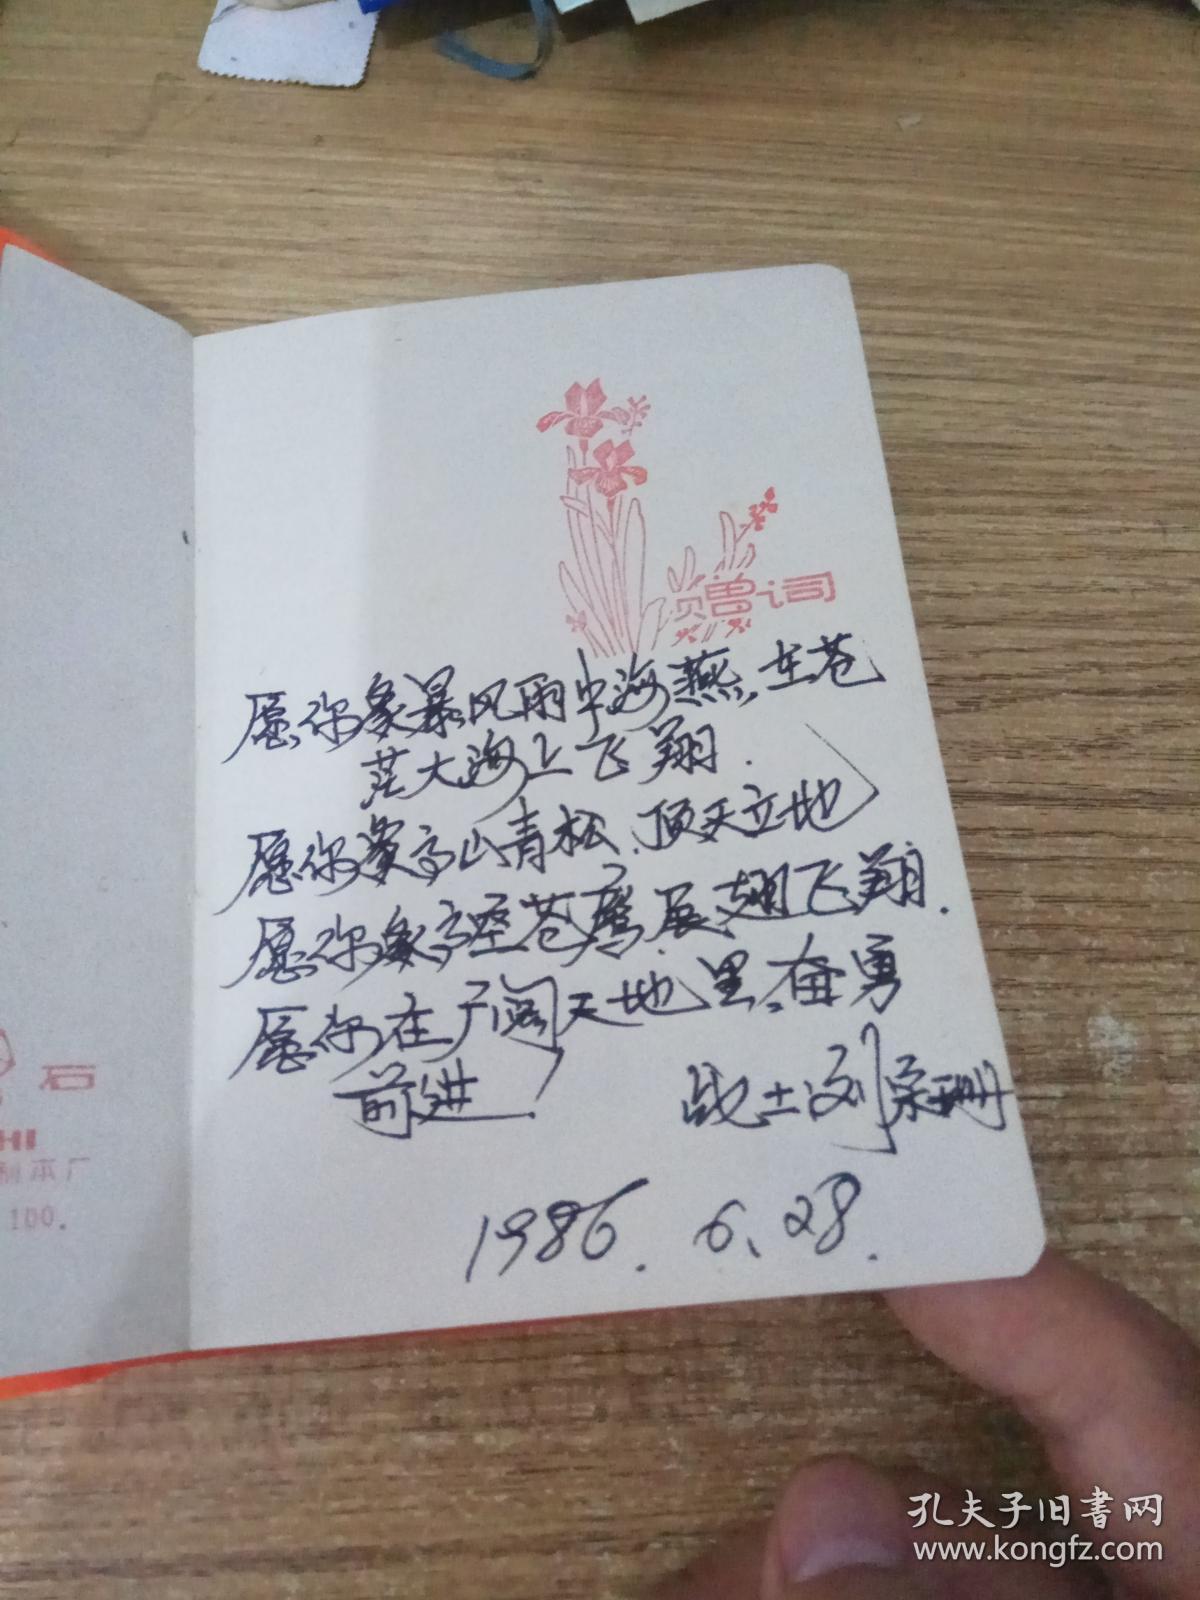 赠词
愿你象暴风雨中海燕,在苍
茫大海上飞翔.
愿你象高山青松、顶天立地
愿你象高空苍鹰,展翅飞翔.
愿你在广阔天地里,奋勇
前进!
战士刘宗珊
1986.6.28.
石
HI
制本厂
100.
孔夫子旧書网
www.kongfz.com